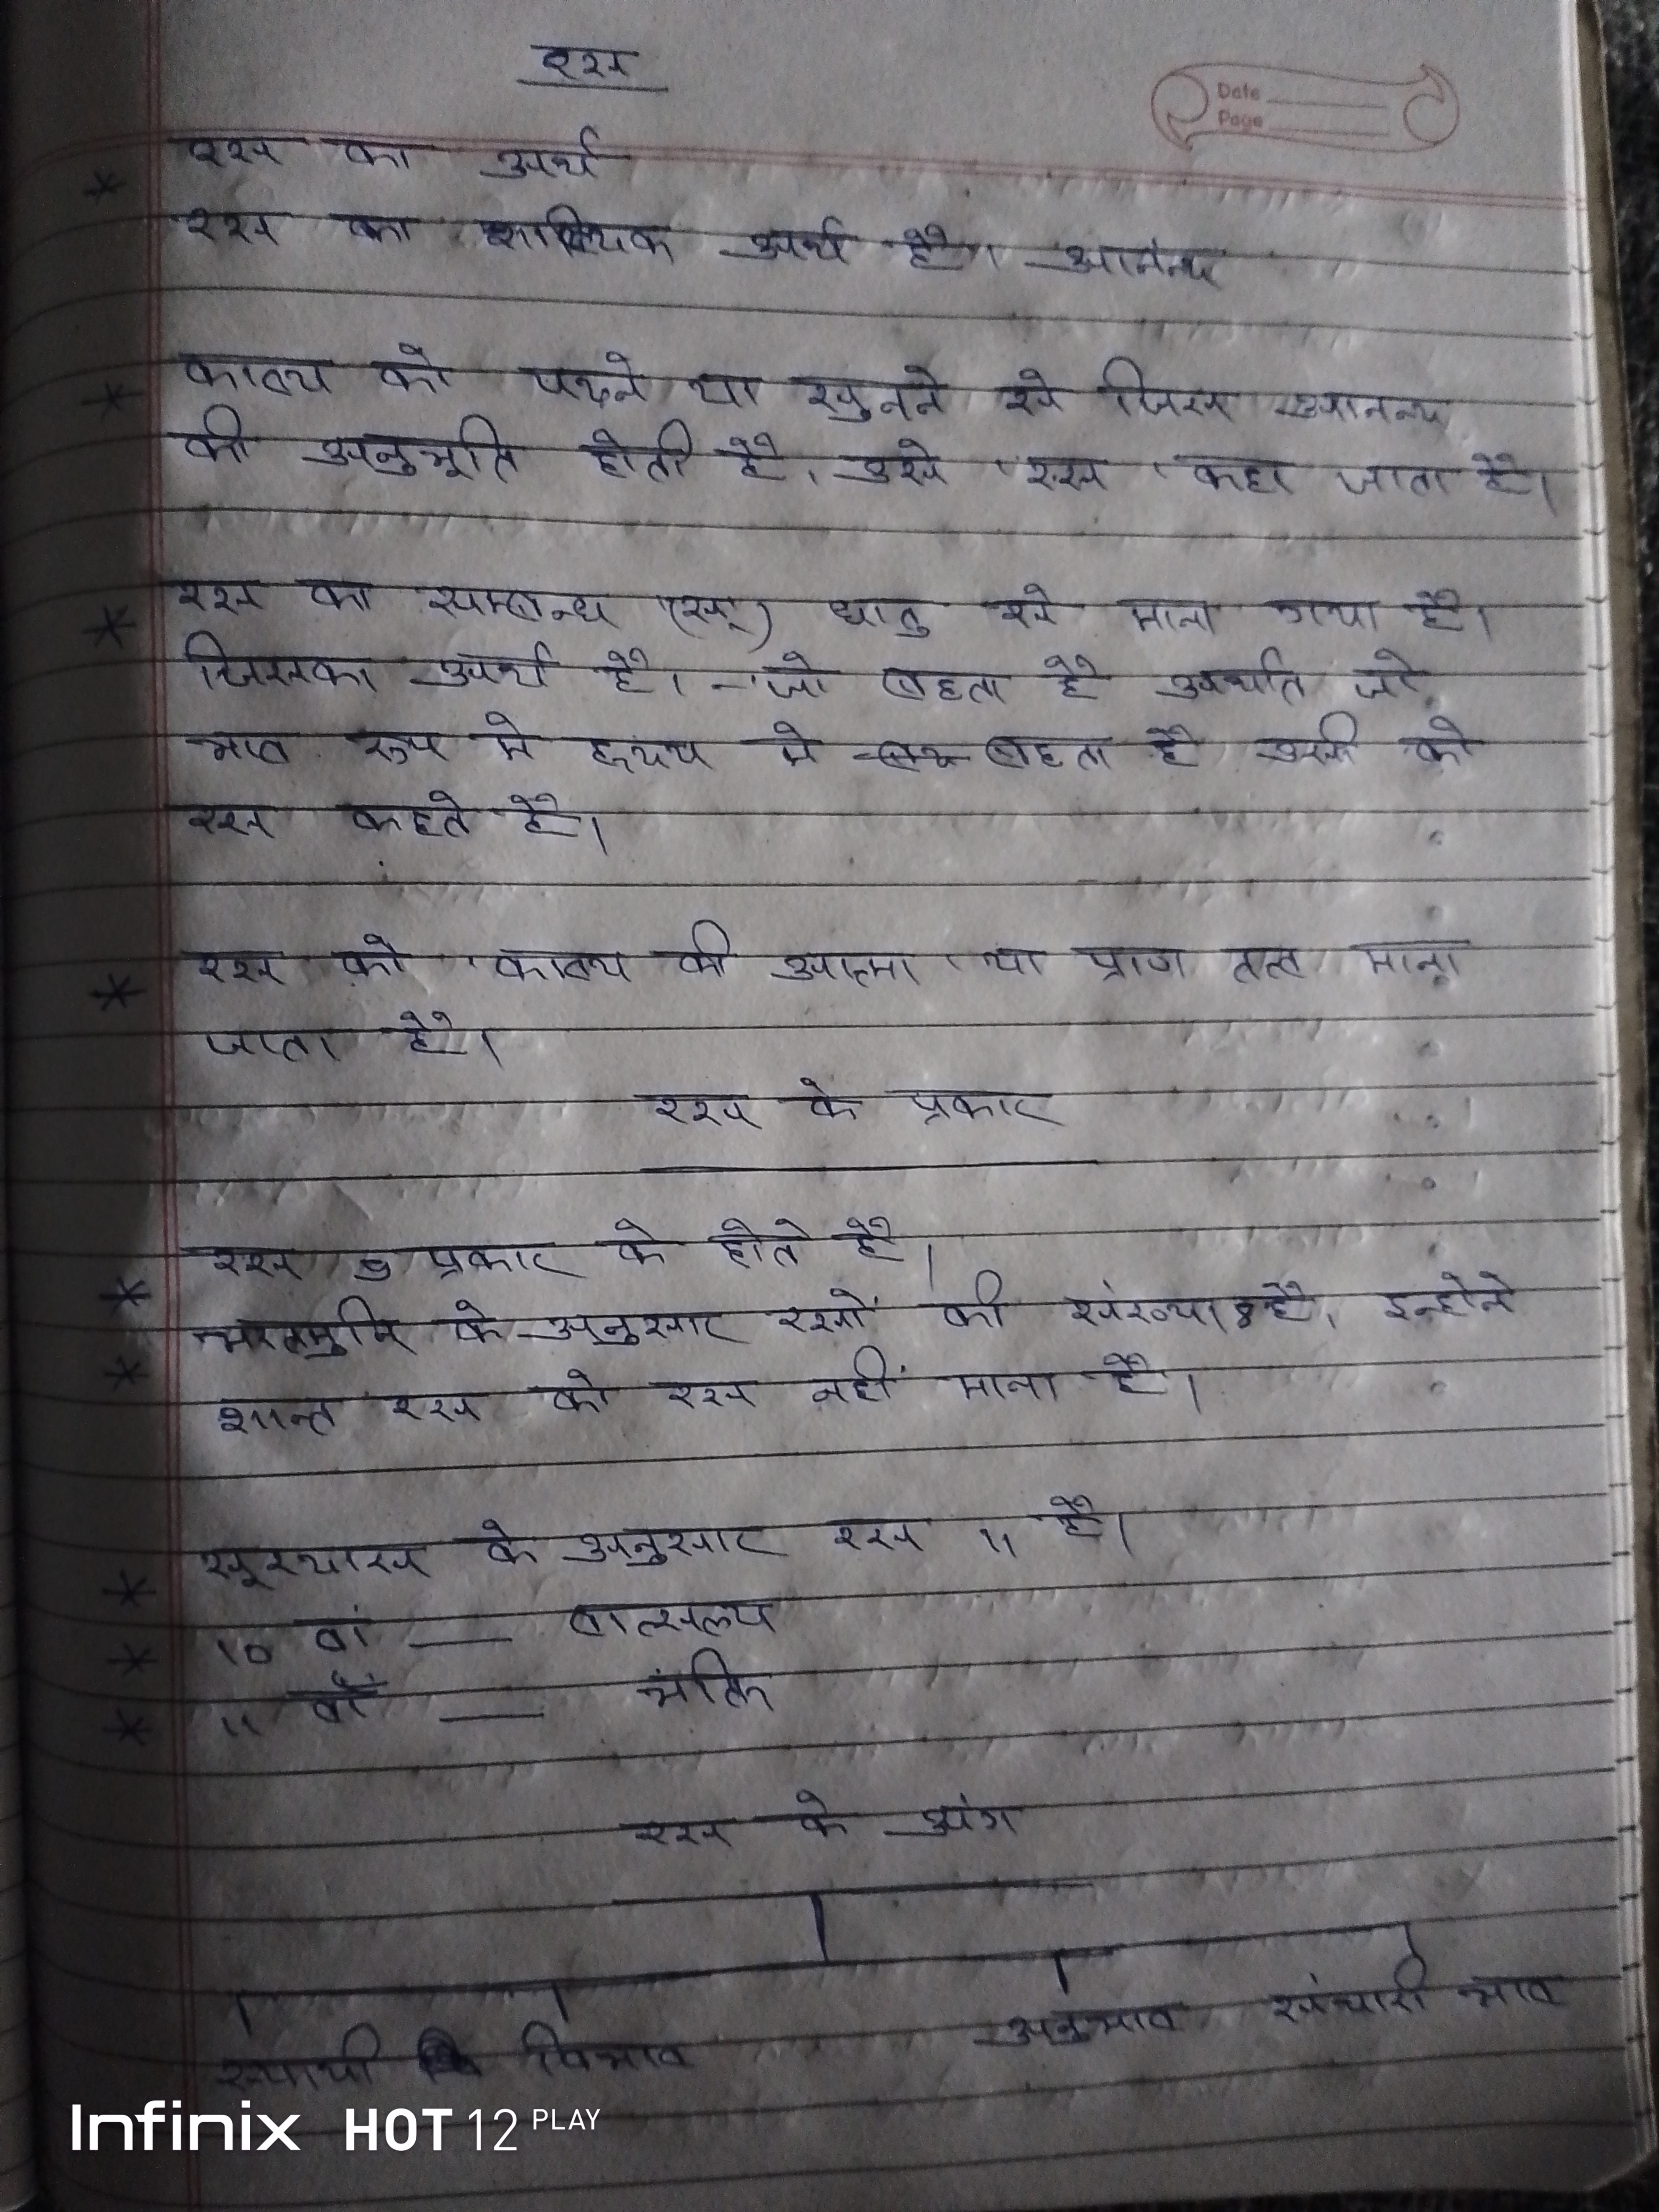 रस
Date
Page
रस का अर्थ
रस का शाब्दिक अर्थ है। आनन्द
काव्य को पढ़ने या सुनने से जिस आनन्द
की अनुभूति होती है, उसे 'रस' कहा जाता है।
रस का सम्बन्ध (सृ) धातु से माना गया है।
जिसका अर्थ है। - जो बहता है अर्थात जो
भाव रूप मे हृदय मे बहता है उसी को
रस कहते है।
रस को 'काव्य की आत्मा' या प्राण तत्व माना
जाता है।
रस के प्रकार
रस 9 प्रकार के होते है।
भरतमुनि के अनुसार रसों की संख्या 8 है, इन्होने
शान्त रस को रस नहीं माना है।
सूरदास के अनुसार रस 11 है।
10 वां — वात्सल्य
11 वाँ — भक्ति
रस के अंग
स्थायी विभाव अनुभाव संचारी भाव
Infinix HOT 12 PLAY